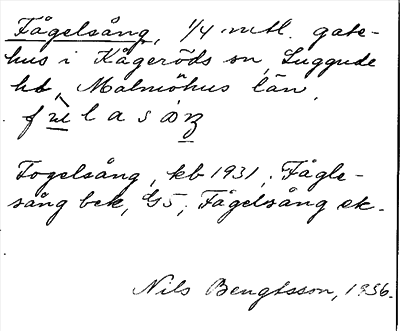 Fågelsång, 1/4 mtl. gate-
hus i Kågeröds sn, Luggude
hd, Malmöhus län,
Fogelsång, kb 1931, Fågle-
sång bek, G5; Fågelsång ek.
Nils Bengtsson, 1936.